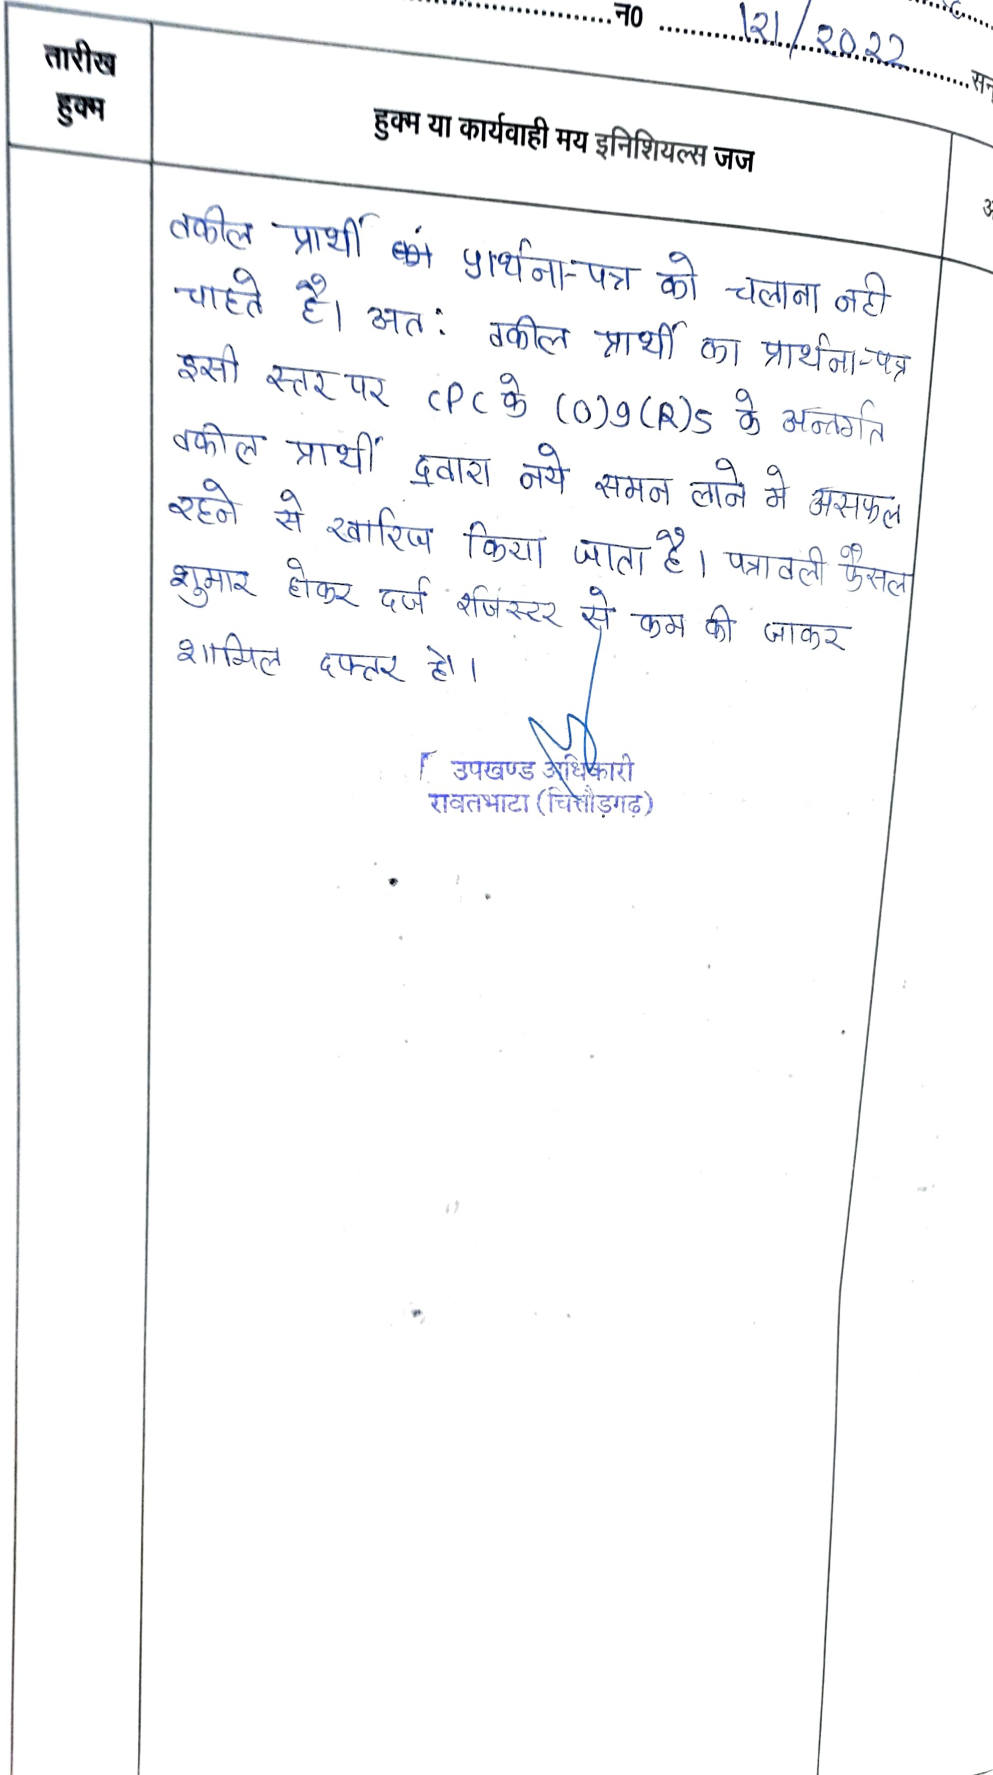 न0 121/2022 सन्
तारीख
हुक्म
हुक्म या कार्यवाही मय इनिशियल्स जज
वकील प्रार्थी प्रार्थना-पत्र को चलाना नही
चाहते है। अतः वकील प्रार्थी का प्रार्थना-पत्र
इसी स्तर पर CPC के (O)9(R)5 के अन्तर्गत
वकील प्रार्थी द्रवारा नये समन लाने मे असफल
रहने से खारिज किया जाता है। पत्रावली फैसल
शुमार होकर दर्ज रजिस्टर से कम की जाकर
शामिल दफ्तर हो।
उपखण्ड अधिकारी
रावतभाटा (चित्तौड़गढ़)